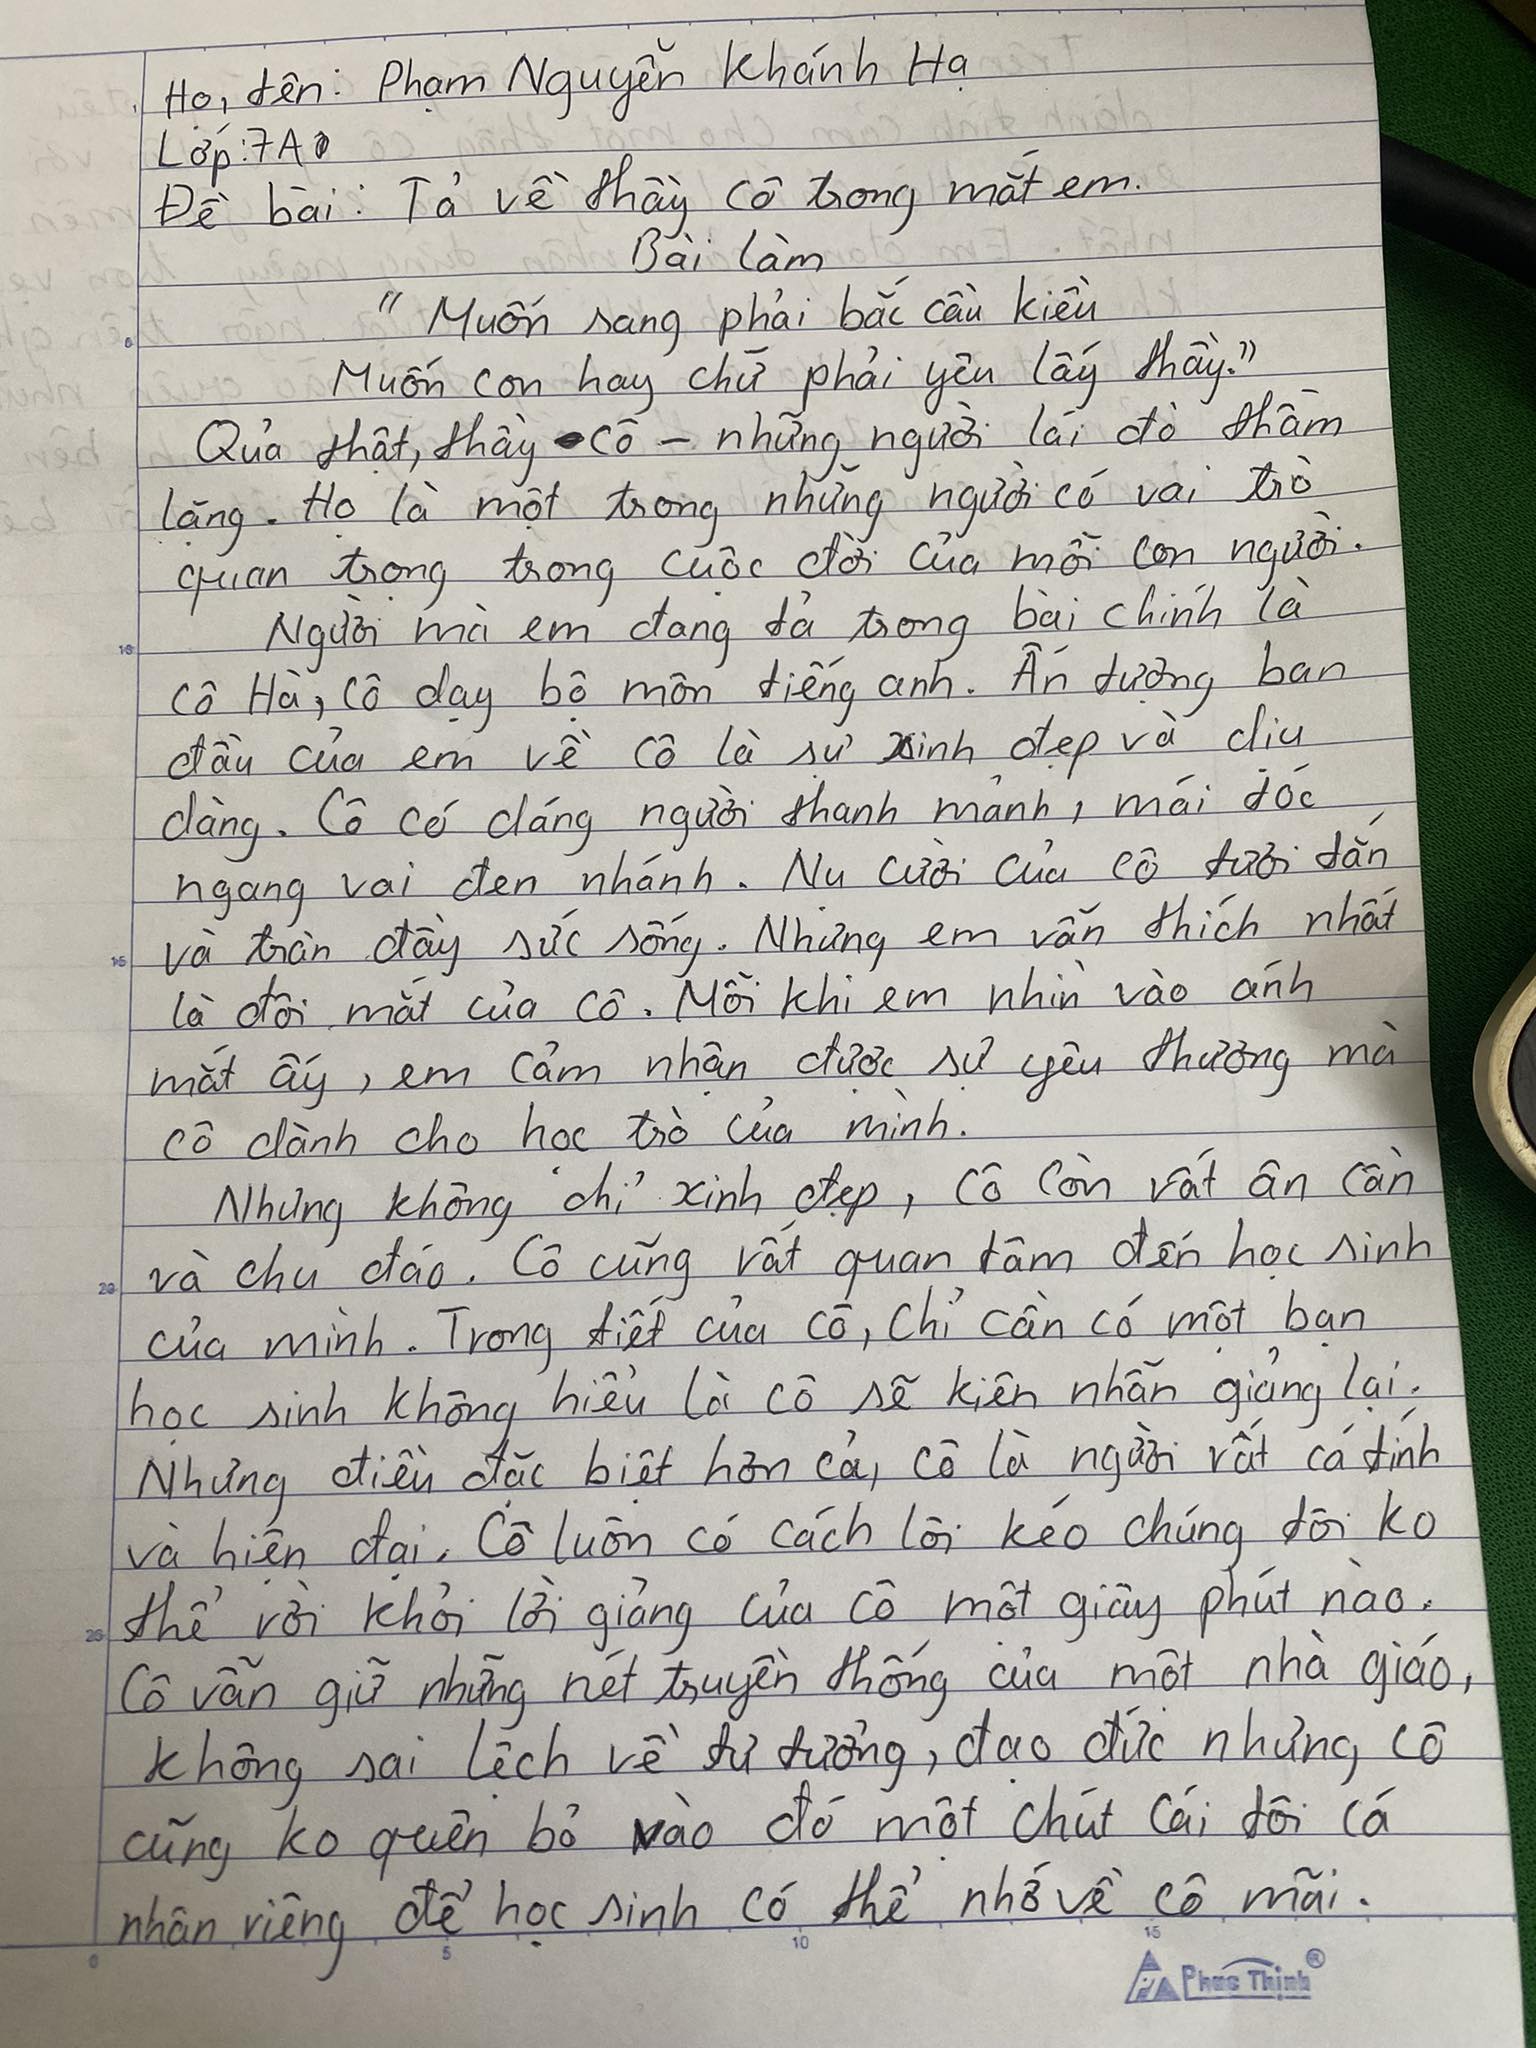 Họ, tên: Phạm Nguyễn Khánh Hạ
Lớp: 7A1
Đề bài: Tả về thầy cô trong mắt em.
Bài làm
"Muốn sang phải bắc cầu kiều
Muốn con hay chữ phải yêu lấy thầy."
Quả thật, thầy cô – những người lái đò thầm
lặng. Họ là một trong những người có vai trò
quan trọng trong cuộc đời của mỗi con người.
Người mà em đang tả trong bài chính là
cô Hà, cô dạy bộ môn tiếng anh. Ấn tượng ban
đầu của em về cô là sự xinh đẹp và dịu
dàng. Cô có dáng người thanh mảnh, mái tóc
ngang vai đen nhánh. Nụ cười của cô tươi tắn
và tràn đầy sức sống. Nhưng em vẫn thích nhất
là đôi mắt của cô. Mỗi khi em nhìn vào ánh
mắt ấy, em cảm nhận được sự yêu thương mà
cô dành cho học trò của mình.
Nhưng không chỉ xinh đẹp, cô còn rất ân cần
và chu đáo. Cô cũng rất quan tâm đến học sinh
của mình. Trong tiết của cô, chỉ cần có một bạn
học sinh không hiểu là cô sẽ kiên nhẫn giảng lại.
Nhưng điều đặc biệt hơn cả, cô là người rất cá tính
và hiện đại. Cô luôn có cách lôi kéo chúng tôi ko
thể rời khỏi lời giảng của cô một giây phút nào.
Cô vẫn giữ những nét truyền thống của một nhà giáo,
không sai lệch về tư tưởng, đạo đức nhưng cô
cũng ko quên bỏ vào đó một chút cái tôi cá
nhân riêng để học sinh có thể nhớ về cô mãi.
0 5 10 15
5
10
15
20
25
Phúc Thịnh®